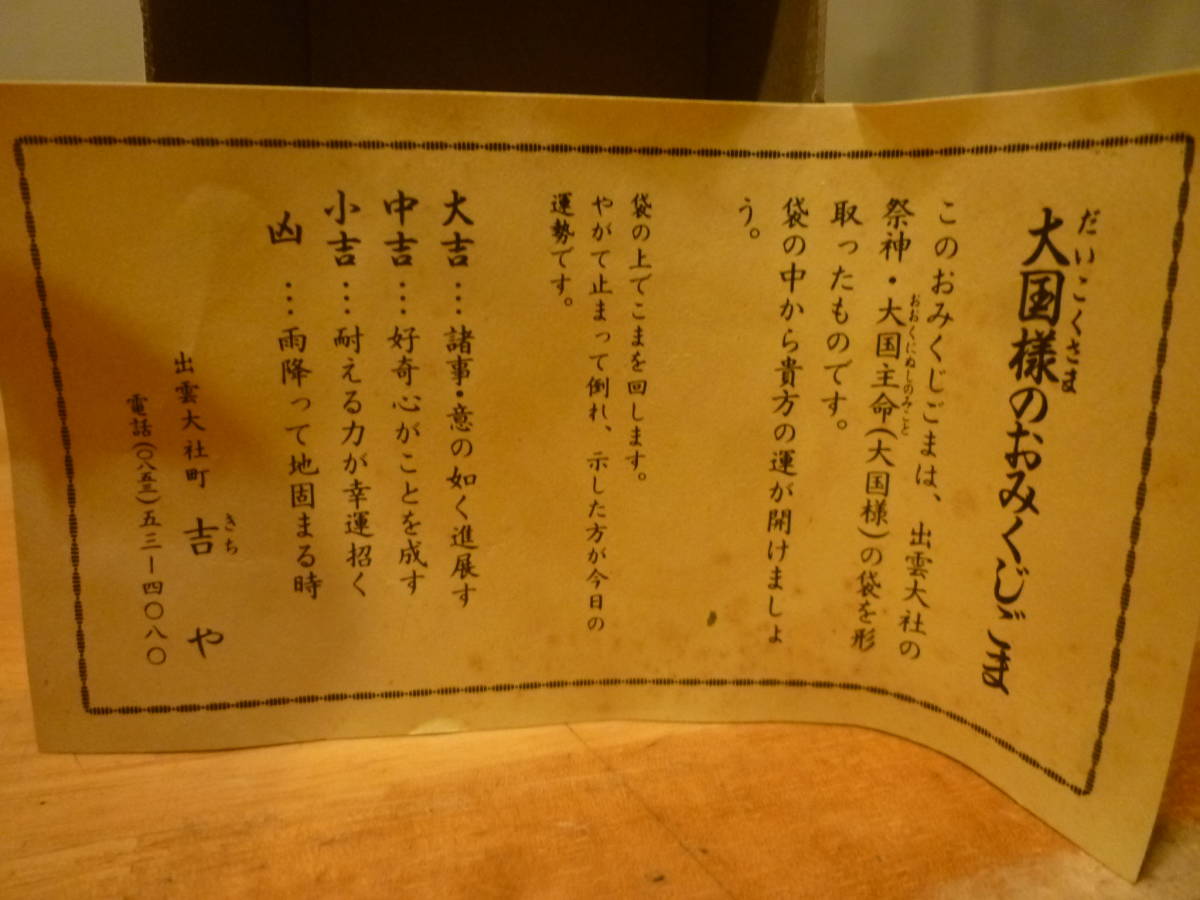 大国様のおみくじごま
だいこくさま
このおみくじごまは、出雲大社の
祭神・大国主命(大国様)の袋を形
おおくにぬしのみこと
取ったものです。
袋の中から貴方の運が開けましょ
う。
袋の上でこまを回します。
やがて止まって倒れ、示した方が今日の
運勢です。
大吉…諸事・意の如く進展す
中吉…好奇心がことを成す
小吉…耐える力が幸運招く
凶…雨降って地固まる時
出雲大社町 吉や
きち
電話(〇八五三)五三ー四〇八〇